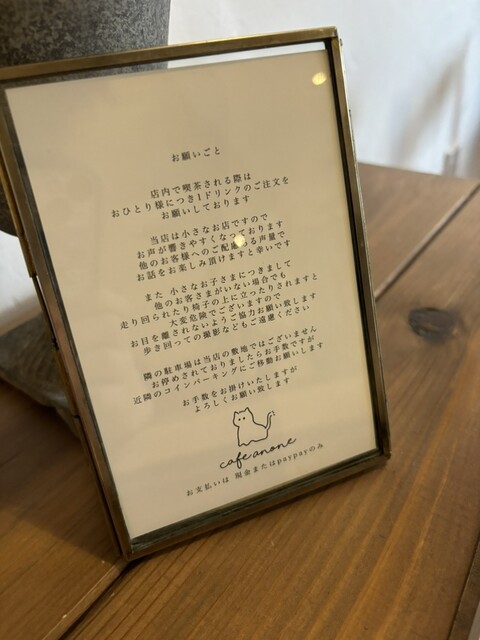 お願いごと
店内で喫茶される際は
おひとり様につき1ドリンクのご注文を
お願いしております
当店は小さなお店ですので
お声が響きやすくなっております
他のお客様へのご配慮ある声量で
お話をお楽しみ頂けますと幸いです
また 小さなお子さまにつきまして
他のお客さまがいない場合でも
走り回られたり椅子の上に立ったりされますと
大変危険でございますので
お目を離されないようご協力お願い致します
歩き回っての撮影などもご遠慮ください
隣の駐車場は当店の敷地ではございません
お停めされておりましたらお手数ですが
近隣のコインパーキングにご移動お願いします
お手数をお掛けいたしますが
よろしくお願い致します
cafe anone
お支払いは 現金またはpaypayのみ